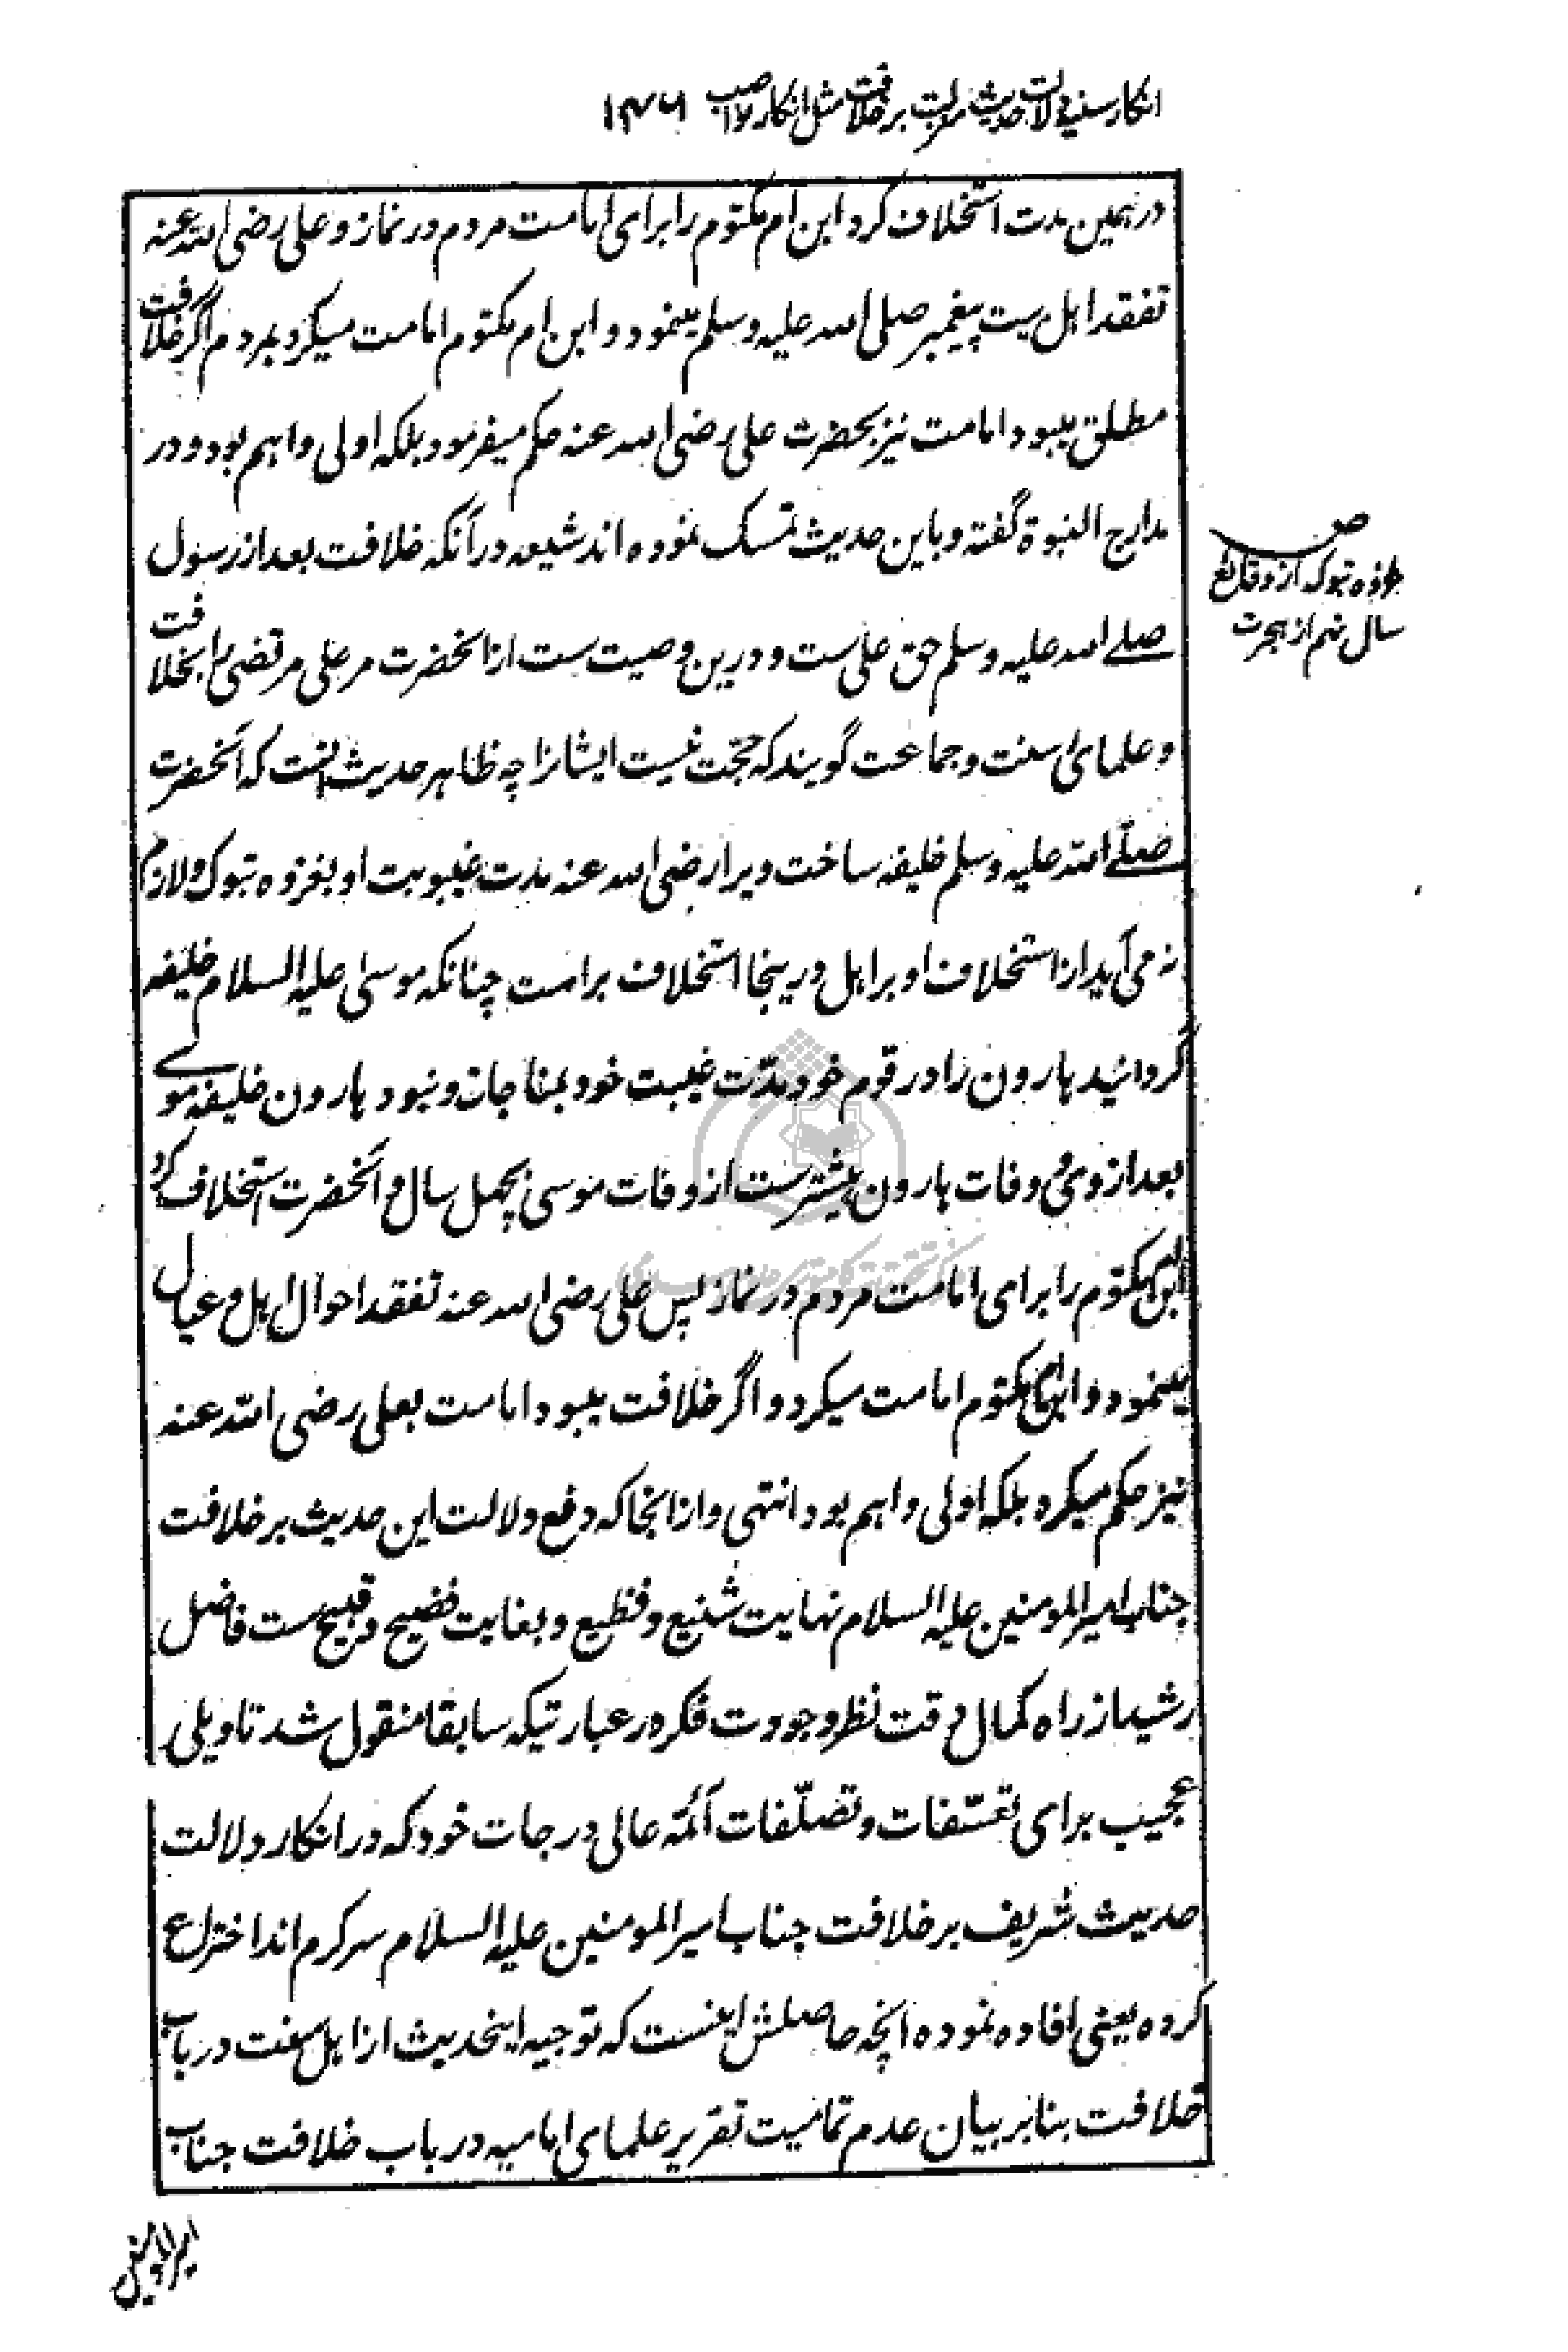 انکار سنیه دلالت حدیث منزلت بر خلافت مثل انکار نواصب ۱۳۷۶
در همین مدت استخلاف کرد ابن ام مکتوم را برای امامت مردم در نماز و علی رضی الله عنه
تفقد اهل بیت پیغمبر صلی الله علیه وسلم مینمود و ابن ام مکتوم امامت میکرد بمردم اگر خلافت
مطلق میبود امامت نیز بحضرت علی رضی الله عنه حکم میفرمود بلکه اولی و اهم بود و در
مدارج النبوة گفته و باین حدیث تمسک نموده اند شیعه در آنکه خلافت بعد از رسول
صلے الله علیه وسلم حق علی ست و درین وصیت ست از انحضرت مر علی مرتضی را بخلافت
و علمای سنت و جماعت گویند که حجت نیست ایشانرا چه ظاهر حدیث انست که آنحضرت
صلّے الله علیه وسلم خلیفه ساخت ویرا رضی الله عنه مدت غیبوبت او بغزوه تبوک و لازم
نه می آید از استخلاف او بر اهل درینجا استخلاف بر امت چنانکه موسی علیه السلام خلیفه
گردانید هارون را در قوم خود مدّت غیبت خود بمناجات و نبود هارون خلیفه موسے
بعد از وی و وفات هارون پیشترست از وفات موسی بچهل سال و آنحضرت استخلاف کرد
ابن ام مکتوم را برای امامت مردم در نماز پس علی رضی الله عنه تفقد احوال اهل و عیال
مینمود و ابن ام مکتوم امامت میکرد و اگر خلافت میبود امامت بعلی رضی الله عنه
نیز حکم میکرد بلکه اولی و اهم بود انتهی و از انجا که دفع دلالت این حدیث بر خلافت
جناب امیر المومنین علیه السلام نهایت شنیع و فظیع و بغایت فضیح و قبیح ست فاضل
رشید از راه کمال دقت نظر و جودت فکر در عبارتیکه سابقا منقول شد تاویلی
عجیب برای تعسّفات و تصلّفات آئمّه عالی درجات خود که در انکار دلالت
حدیث شریف بر خلافت جناب امیر المومنین علیه السلام سرگرم اند اختراع
کرده یعنی افاده نموده انچه حاصلش اینست که توجیه اینحدیث از اهل سنت در باب
خلافت بنابر بیان عدم تمامیت تقریر علمای امامیه در باب خلافت جناب
غزوه تبوک از وقائع
سال نهم از هجرت
امیر المومنین